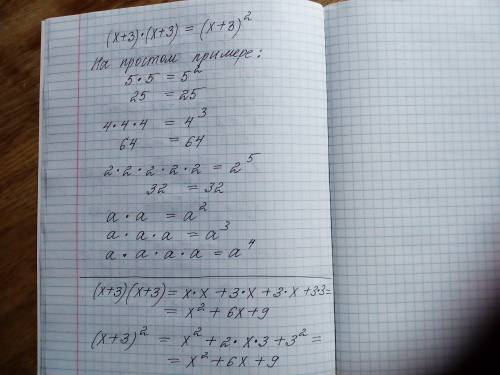 (x+3)·(x+3) = (x+3)²
На простом примере:
5·5 = 5²
25 = 25
4·4·4 = 4³
64 = 64
2·2·2·2·2 = 2⁵
32 = 32
a·a = a²
a·a·a = a³
a·a·a·a = a⁴
(x+3)(x+3) = x·x+3·x+3·x+3·3=
= x²+6x+9
(x+3)² = x²+2·x·3+3²=
= x²+6x+9